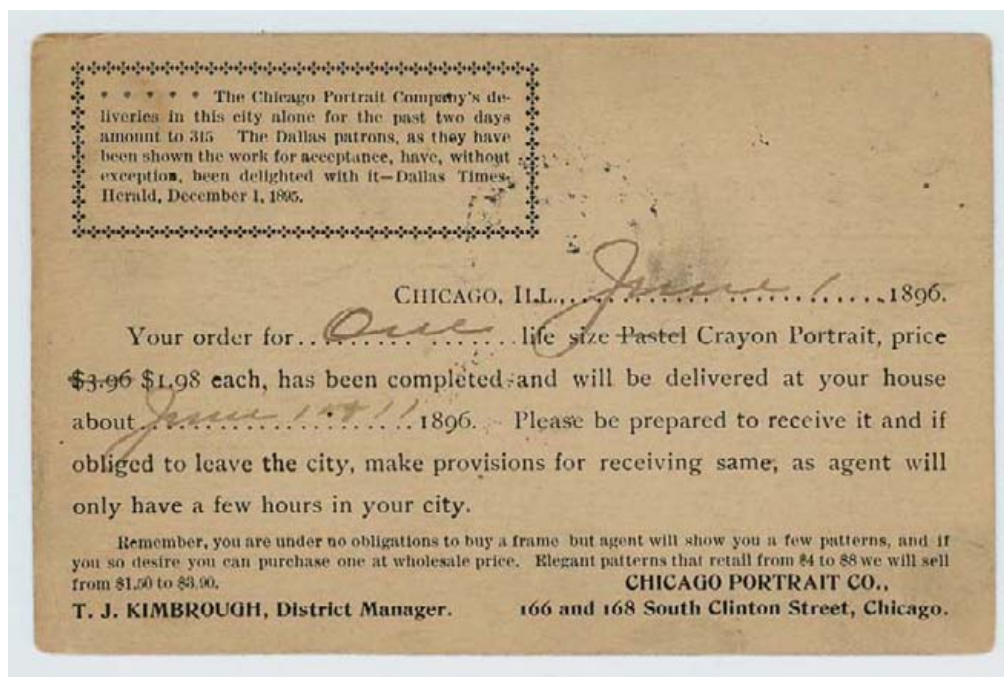 * * * * * The Chicago Portrait Company's de-
liveries in this city alone for the past two days
amount to 315 The Dallas patrons, as they have
been shown the work for acceptance, have, without
exception, been delighted with it—Dallas Times-
Herald, December 1, 1895.
CHICAGO, ILL., June 1 1896.
Your order for One life size Pastel Crayon Portrait, price
$3.96 $1.98 each, has been completed and will be delivered at your house
about June 11 1896. Please be prepared to receive it and if
obliged to leave the city, make provisions for receiving same, as agent will
only have a few hours in your city.
Remember, you are under no obligations to buy a frame but agent will show you a few patterns, and if
you so desire you can purchase one at wholesale price. Elegant patterns that retail from $4 to $8 we will sell
from $1.50 to $3.90.
CHICAGO PORTRAIT CO.,
T. J. KIMBROUGH, District Manager. 166 and 168 South Clinton Street, Chicago.